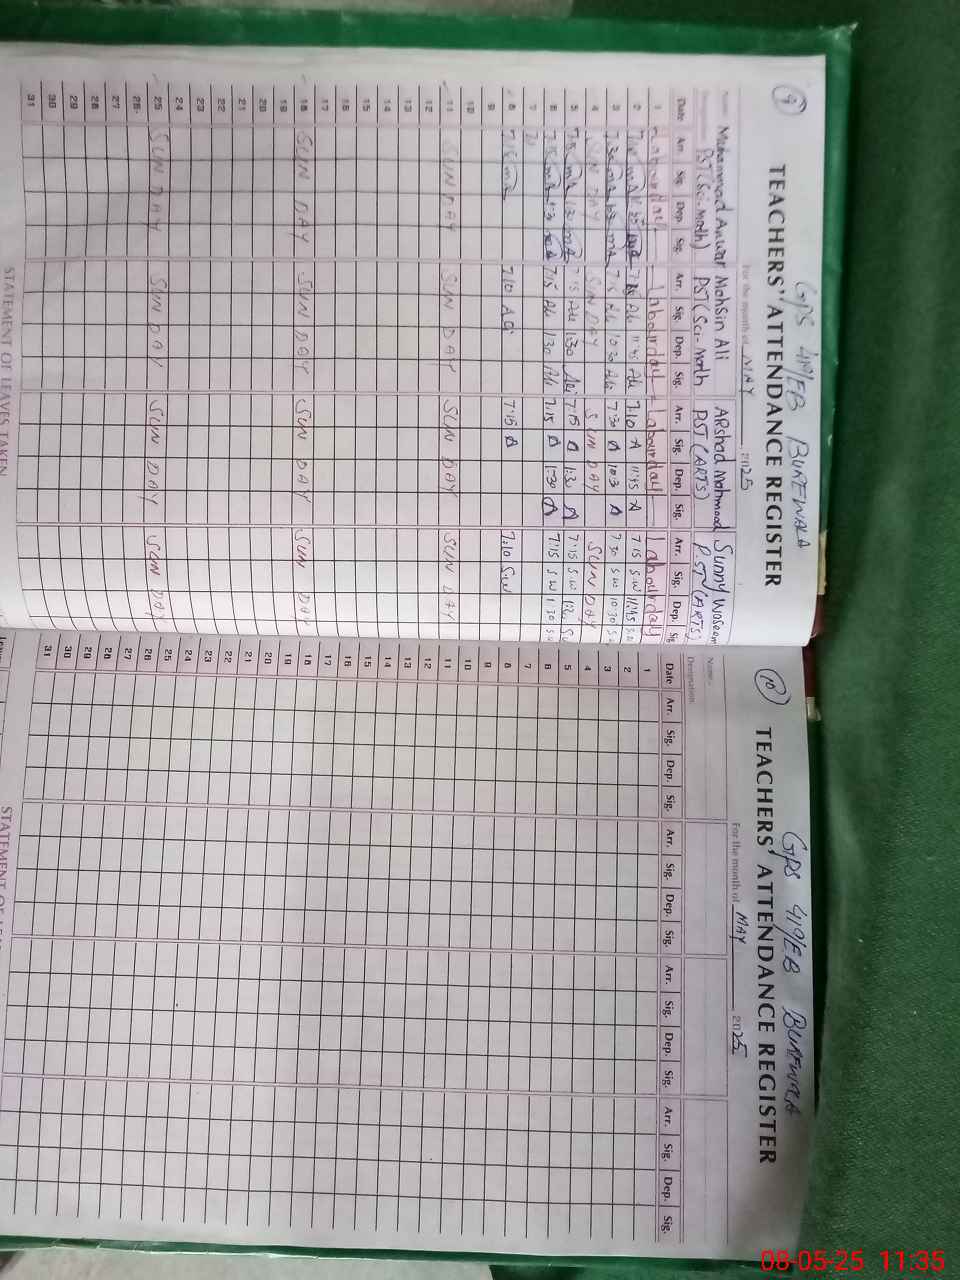 9
GPS 419/EB BUREWALA
TEACHERS' ATTENDANCE REGISTER
For the month of MAY 2025
Muhammad Anwar Mohsin Ali ARshad Mahmood Sunny Waseem
PST (Sci-Math) PST (Sci-Math PST (ARTS) PST (ARTS)
Date Arr. Sig. Dep. Sig. Arr. Sig. Dep. Sig. Arr. Sig. Dep. Sig. Arr. Sig. Dep. Sig
1 Labourday Labourday Labourday Labourday
2 7:10 11:45 7:15 S.W 11:45
3 7:30 7:15 10:30 7:30 10:3 7:30 S.W 10:30
4 SUN DAY SUN DAY SUN DAY SUN DAY
5 7:15 1:30 7:15 Ali 1:30 Ali 7:15 1:3 7:15 S.W
6 7:15 1:3 7:15 Ali 1:30 Ali 7:15 1:30 7:15 S.W 1:30
7
8 7:15 7:10 7:15 7:10 S.W
9
10
11 SUN DAY SUN DAY SUN DAY SUN DAY
12
13
14
15
16
17
18 SUN DAY SUN DAY SUN DAY SUN DAY
19
20
21
22
23
24
25 SUN DAY SUN DAY SUN DAY SUN DAY
26
27
28
29
30
31
STATEMENT OF LEAVES TAKEN
10
GPS 419/EB BUREWALA
TEACHERS' ATTENDANCE REGISTER
For the month of MAY 2025
Name:
Designation:
Date Arr. Sig. Dep. Sig. Arr. Sig. Dep. Sig. Arr. Sig. Dep. Sig. Arr. Sig. Dep. Sig.
1
2
3
4
5
6
7
8
9
10
11
12
13
14
15
16
17
18
19
20
21
22
23
24
25
26
27
28
29
30
31
STATEMENT OF
08-05-25 11:35